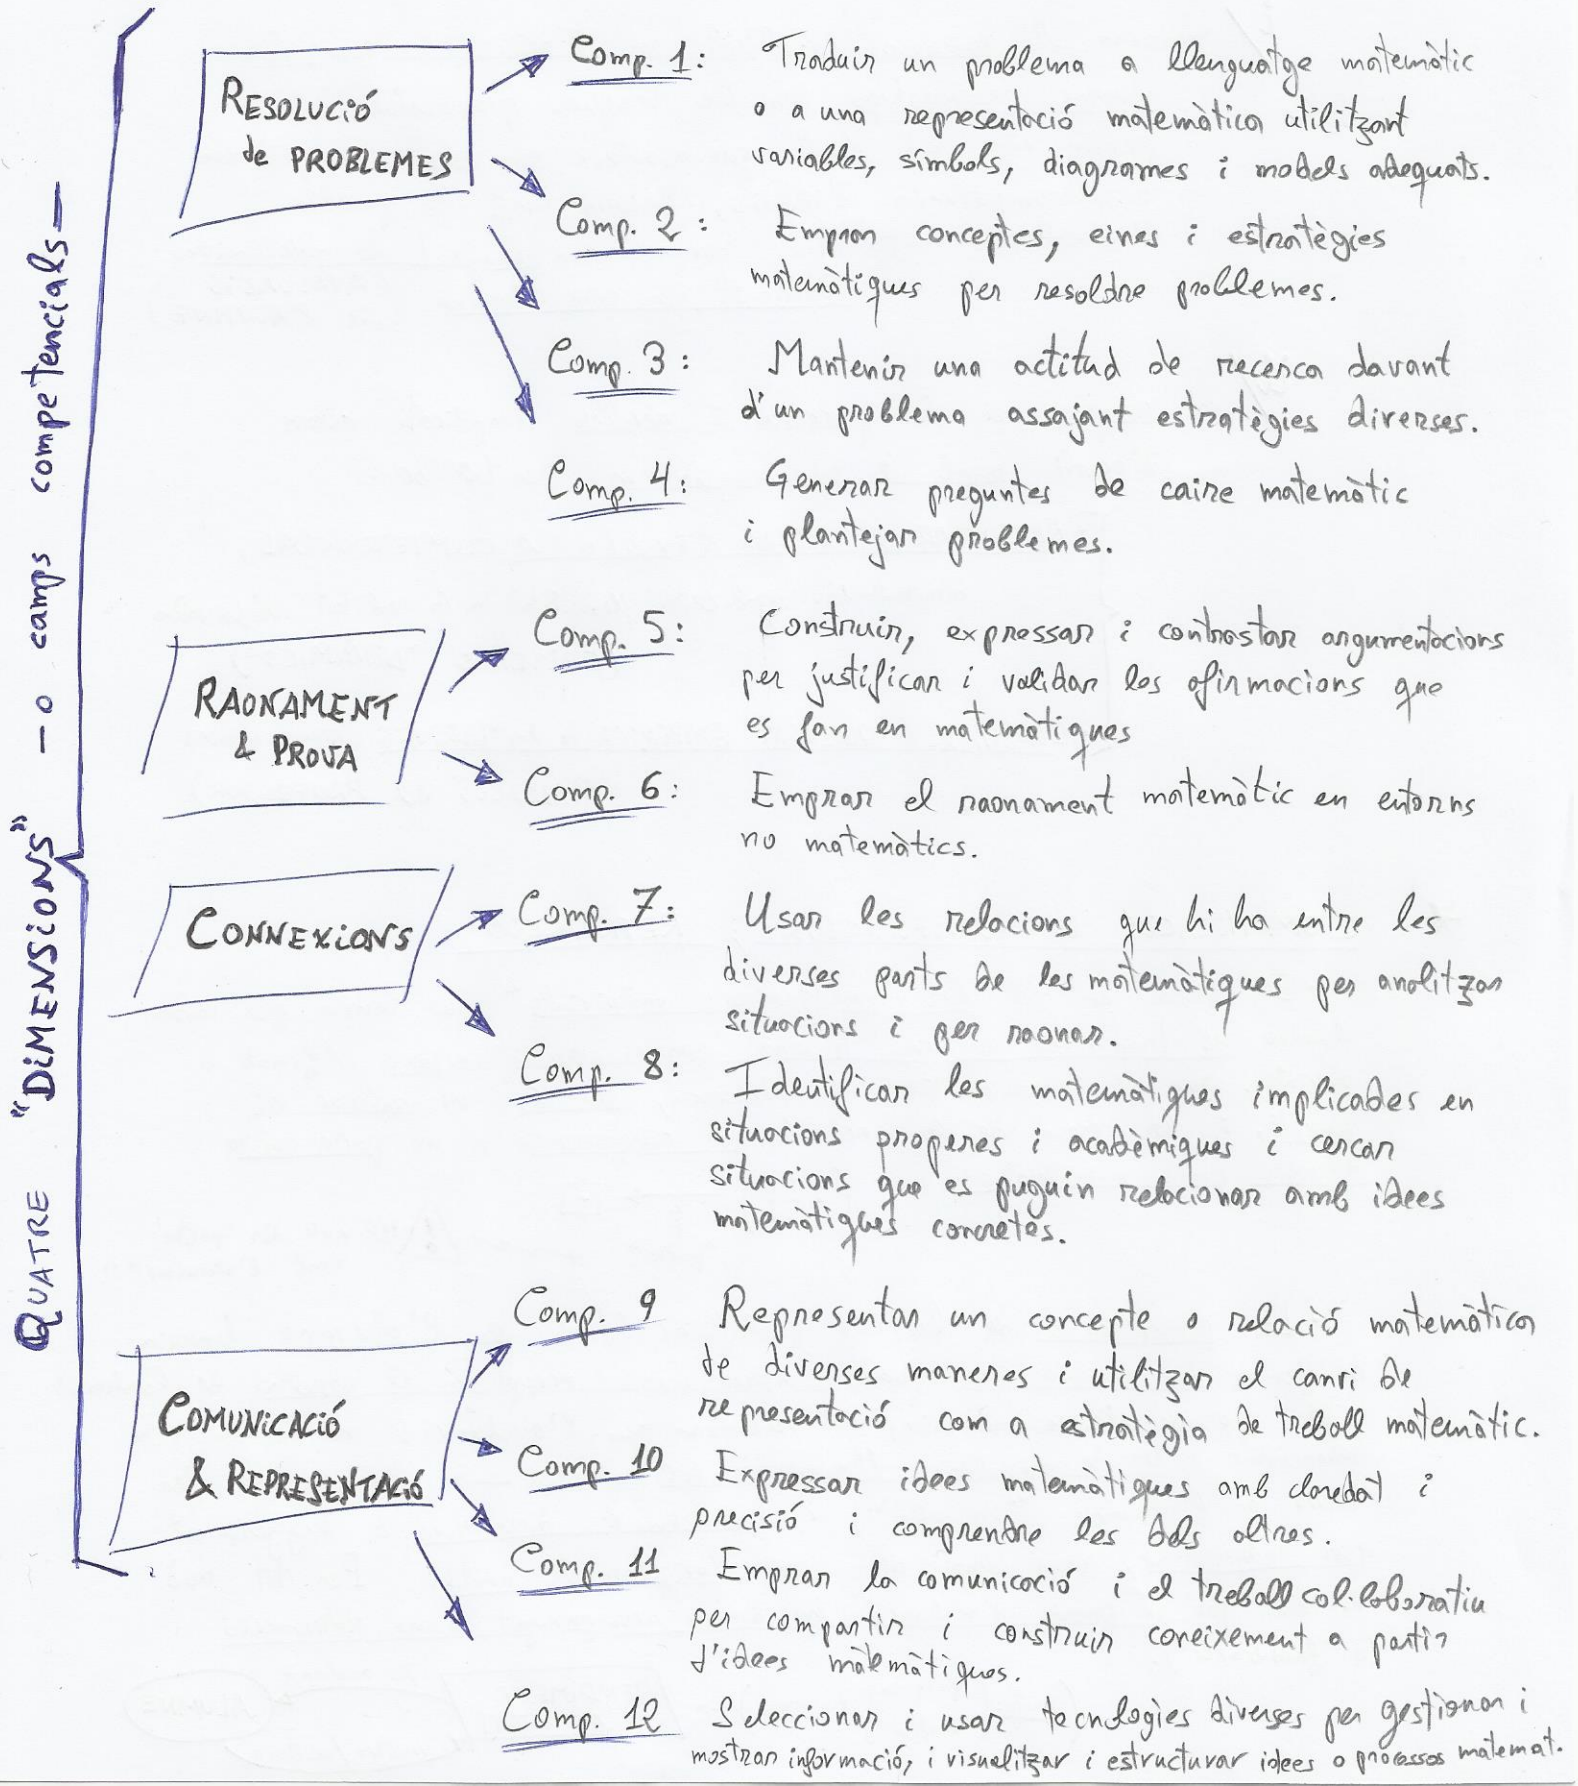 QUATRE "DIMENSIONS" - o camps competencials -
RESOLUCIÓ
de PROBLEMES
Comp. 1: Traduir un problema a llenguatge matemàtic
o a una representació matemàtica utilitzant
variables, símbols, diagrames i models adequats.
Comp. 2: Emprar conceptes, eines i estratègies
matemàtiques per resoldre problemes.
Comp. 3: Mantenir una actitud de recerca davant
d'un problema assajant estratègies diverses.
Comp. 4: Generar preguntes de caire matemàtic
i plantejar problemes.
RAONAMENT
& PROVA
Comp. 5: Construir, expressar i contrastar argumentacions
per justificar i validar les afirmacions que
es fan en matemàtiques
Comp. 6: Emprar el raonament matemàtic en entorns
no matemàtics.
CONNEXIONS
Comp. 7: Usar les relacions que hi ha entre les
diverses parts de les matemàtiques per analitzar
situacions i per raonar.
Comp. 8: Identificar les matemàtiques implicades en
situacions properes i acadèmiques i cercar
situacions que es puguin relacionar amb idees
matemàtiques concretes.
COMUNICACIÓ
& REPRESENTACIÓ
Comp. 9 Representar un concepte o relació matemàtica
de diverses maneres i utilitzar el canvi de
representació com a estratègia de treball matemàtic.
Comp. 10 Expressar idees matemàtiques amb claredat i
precisió i comprendre les dels altres.
Comp. 11 Emprar la comunicació i el treball col·laboratiu
per compartir i construir coneixement a partir
d'idees matemàtiques.
Comp. 12 Seleccionar i usar tecnologies diverses per gestionar i
mostrar informació, i visualitzar i estructurar idees o processos matemat.